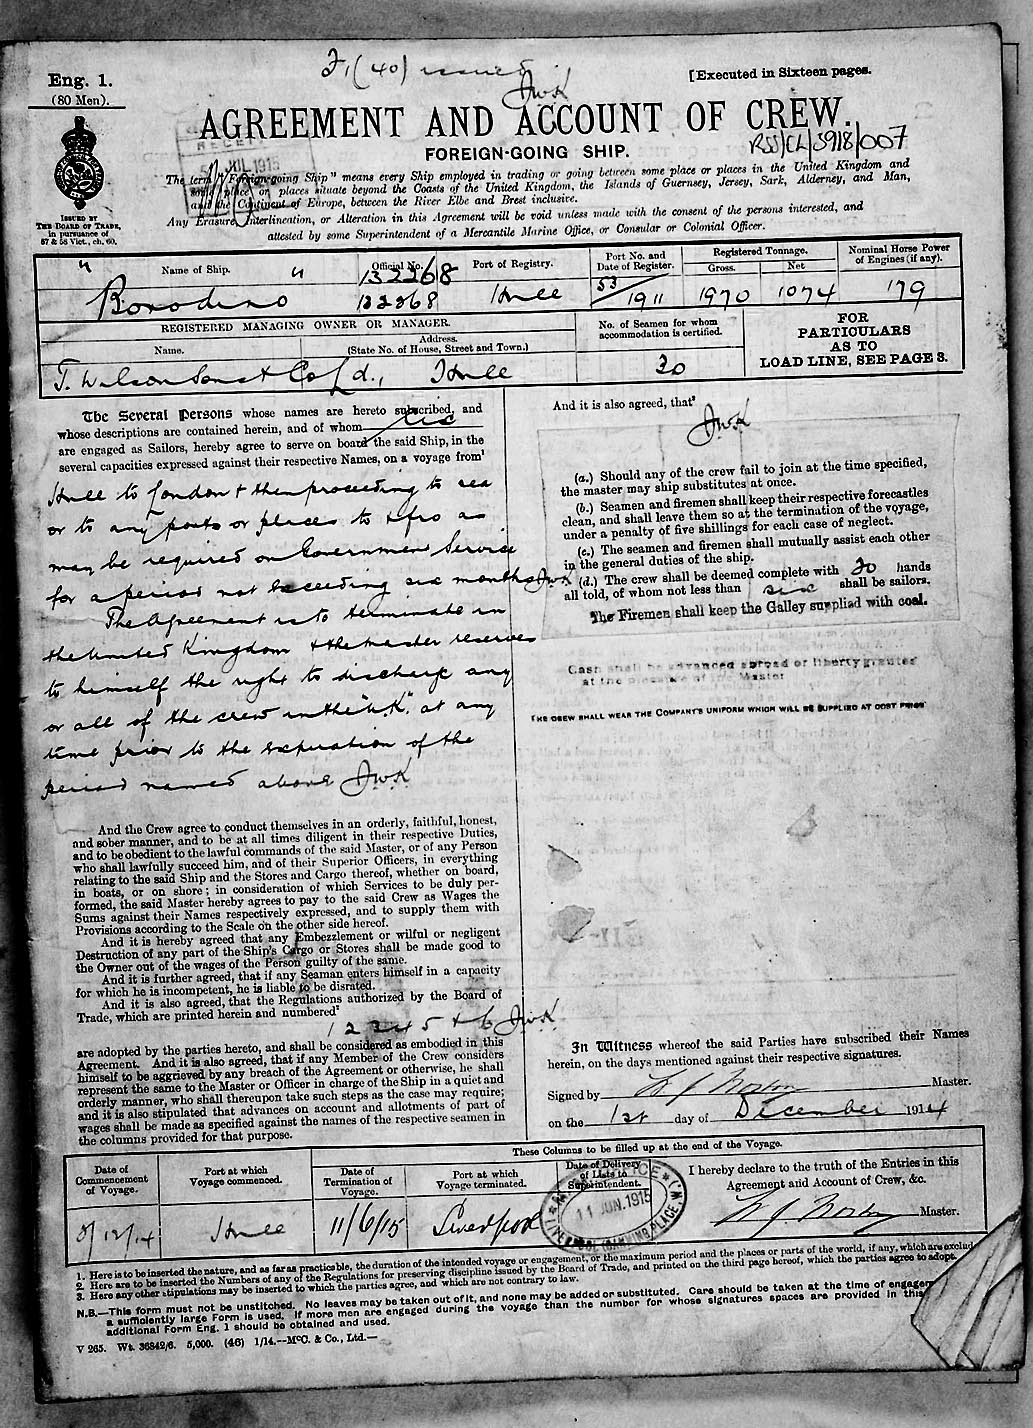 Eng. 1.
(80 Men).
(40) issued
JWK
[Executed in Sixteen pages.
AGREEMENT AND ACCOUNT OF CREW.
RSS/CL/5918/007
FOREIGN-GOING SHIP.
JUL 1915
The term "Foreign-going Ship" means every Ship employed in trading or going between some place or places in the United Kingdom and
some place or places situate beyond the Coasts of the United Kingdom, the Islands of Guernsey, Jersey, Sark, Alderney, and Man,
and the Continent of Europe, between the River Elbe and Brest inclusive.
Any Erasure, Interlineation, or Alteration in this Agreement will be void unless made with the consent of the persons interested, and
attested by some Superintendent of a Mercantile Marine Office, or Consular or Colonial Officer.
ISSUED BY
THE BOARD OF TRADE,
in pursuance of
57 & 58 Vict., ch. 60.
Name of Ship.
Official No.
Port of Registry.
Port No. and
Date of Register.
Registered Tonnage.
Gross.
Net
Nominal Horse Power
of Engines (if any).
" Borodino "
132268
132268
Hull
53/1911
1970
1074
179
REGISTERED MANAGING OWNER OR MANAGER.
Name.
Address.
(State No. of House, Street and Town.)
No. of Seamen for whom
accommodation is certified.
FOR
PARTICULARS
AS TO
LOAD LINE, SEE PAGE 3.
T. Wilson Sons & Co Ld., Hull
30
The Several Persons whose names are hereto subscribed, and
whose descriptions are contained herein, and of whom
are engaged as Sailors, hereby agree to serve on board the said Ship, in the
several capacities expressed against their respective Names, on a voyage from¹
Hull to London & then proceeding to sea
or to any ports or places to & fro as
may be required on Government Service
for a period not exceeding six months JWK
The Agreement is to terminate in
the United Kingdom & the master reserves
to himself the right to discharge any
or all of the crew in the "U.K." at any
time prior to the expiration of the
period named above JWK
And the Crew agree to conduct themselves in an orderly, faithful, honest,
and sober manner, and to be at all times diligent in their respective Duties,
and to be obedient to the lawful commands of the said Master, or of any Person
who shall lawfully succeed him, and of their Superior Officers, in everything
relating to the said Ship and the Stores and Cargo thereof, whether on board,
in boats, or on shore; in consideration of which Services to be duly per-
formed, the said Master hereby agrees to pay to the said Crew as Wages the
Sums against their Names respectively expressed, and to supply them with
Provisions according to the Scale on the other side hereof.
And it is hereby agreed that any Embezzlement or wilful or negligent
Destruction of any part of the Ship's Cargo or Stores shall be made good to
the Owner out of the wages of the Person guilty of the same.
And it is further agreed, that if any Seaman enters himself in a capacity
for which he is incompetent, he is liable to be disrated.
And it is also agreed, that the Regulations authorized by the Board of
Trade, which are printed herein and numbered²
1 2 3 4 5 & 6 JWK
are adopted by the parties hereto, and shall be considered as embodied in this
Agreement. And it is also agreed, that if any Member of the Crew considers
himself to be aggrieved by any breach of the Agreement or otherwise, he shall
represent the same to the Master or Officer in charge of the Ship in a quiet and
orderly manner, who shall thereupon take such steps as the case may require;
and it is also stipulated that advances on account and allotments of part of
wages shall be made as specified against the names of the respective seamen in
the columns provided for that purpose.
And it is also agreed, that³
JWK
(a.) Should any of the crew fail to join at the time specified,
the master may ship substitutes at once.
(b.) Seamen and firemen shall keep their respective forecastles
clean, and shall leave them so at the termination of the voyage,
under a penalty of five shillings for each case of neglect.
(c.) The seamen and firemen shall mutually assist each other
in the general duties of the ship.
(d.) The crew shall be deemed complete with 30 hands
all told, of whom not less than six shall be sailors.
The Firemen shall keep the Galley supplied with coal.
Cash shall be advanced abroad or liberty granted
at the pleasure of the Master
THE CREW SHALL WEAR THE COMPANY'S UNIFORM WHICH WILL BE SUPPLIED AT COST PRICE
In Witness whereof the said Parties have subscribed their Names
herein, on the days mentioned against their respective signatures.
Signed by Master.
on the 1st day of December 1914
These Columns to be filled up at the end of the Voyage.
Date of
Commencement
of Voyage.
Port at which
Voyage commenced.
Date of
Termination of
Voyage.
Port at which
Voyage terminated.
Date of Delivery
of Lists to
Superintendent.
I hereby declare to the truth of the Entries in this
Agreement and Account of Crew, &c.
Master.
/12/14
Hull
11/6/15
Liverpool
11 JUN. 1915
1. Here is to be inserted the nature, and as far as practicable, the duration of the intended voyage or engagement, or the maximum period and the places or parts of the world, if any, which are exclud
2. Here are to be inserted the Numbers of any of the Regulations for preserving discipline issued by the Board of Trade, and printed on the third page hereof, which the parties agree to adopt.
3. Here any other stipulations may be inserted to which the parties agree, and which are not contrary to law.
N.B.—This form must not be unstitched. No leaves may be taken out of it, and none may be added or substituted. Care should be taken at the time of engagem
a sufficiently large Form is used. If more men are engaged during the voyage than the number for whose signatures spaces are provided in this
additional Form Eng. 1 should be obtained and used.
V 265. Wt. 36842/6. 5,000. (46) 1/14.—McC. & Co., Ltd.—